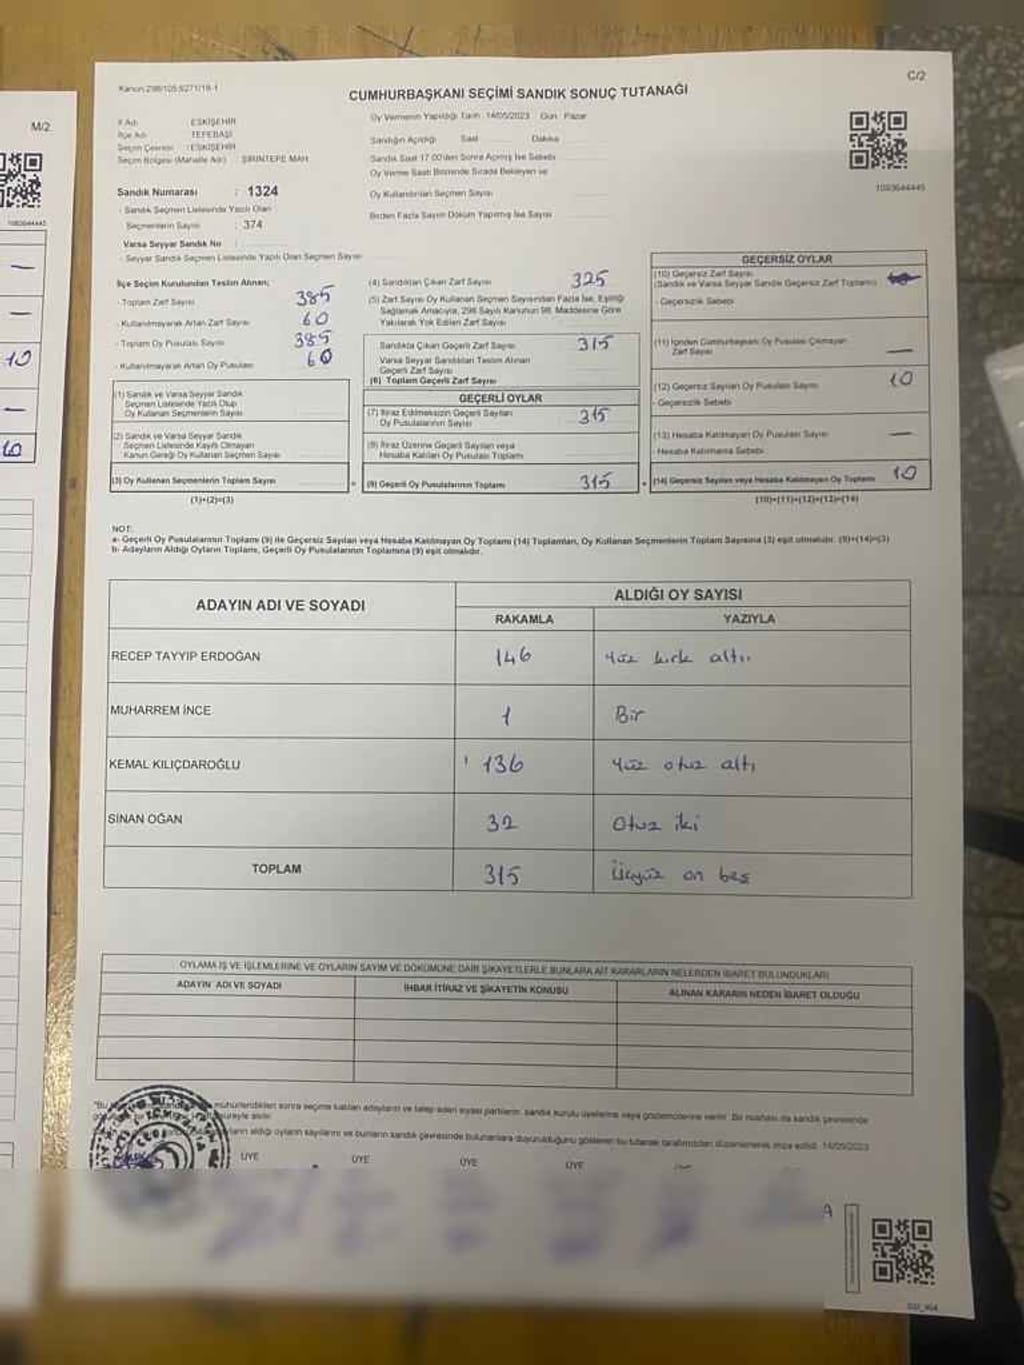 M/2
C/2
Kanun:298/105,6271/19-1
CUMHURBAŞKANI SEÇİMİ SANDIK SONUÇ TUTANAĞI
İl Adı : ESKİŞEHİR
İlçe Adı : TEPEBAŞI
Seçim Çevresi : ESKİŞEHİR
Seçim Bölgesi (Mahalle Adı) : ŞİRİNTEPE MAH.
Sandık Numarası : 1324
- Sandık Seçmen Listesinde Yazılı Olan
Seçmenlerin Sayısı : 374
Varsa Seyyar Sandık No :
- Seyyar Sandık Seçmen Listesinde Yazılı Olan Seçmen Sayısı
Oy Vermenin Yapıldığı Tarih : 14/05/2023 Gün : Pazar
Sandığın Açıldığı Saat Dakika
Sandık Saat 17.00'den Sonra Açılmış İse Sebebi
Oy Verme Saati Bitiminde Sırada Bekleyen ve
Oy Kullandırılan Seçmen Sayısı
Birden Fazla Sayım Döküm Yapılmış İse Sayısı
1083644445
1083644445
İlçe Seçim Kurulundan Teslim Alınan;
- Toplam Zarf Sayısı 385
- Kullanılmayarak Artan Zarf Sayısı 60
- Toplam Oy Pusulası Sayısı 385
- Kullanılmayarak Artan Oy Pusulası 60
(1) Sandık ve Varsa Seyyar Sandık
Seçmen Listesinde Yazılı Olup
Oy Kullanan Seçmenlerin Sayısı
(2) Sandık ve Varsa Seyyar Sandık
Seçmen Listesinde Kayıtlı Olmayan
Kanun Gereği Oy Kullanan Seçmenlerin Sayısı
(3) Oy Kullanan Seçmenlerin Toplam Sayısı
(1)+(2)=(3)
(4) Sandıktan Çıkan Zarf Sayısı 325
(5) Zarf Sayısı Oy Kullanan Seçmen Sayısından Fazla İse, Eşitliği
Sağlamak Amacıyla, 298 Sayılı Kanunun 98. Maddesine Göre
Yakılarak Yok Edilen Zarf Sayısı
Sandıkta Çıkan Geçerli Zarf Sayısı 315
Varsa Seyyar Sandıktan Teslim Alınan
Geçerli Zarf Sayısı
(6) Toplam Geçerli Zarf Sayısı
GEÇERLİ OYLAR
(7) İtiraz Edilmeksizin Geçerli Sayılan
Oy Pusulalarının Sayısı 315
(8) İtiraz Üzerine Geçerli Sayılan veya
Hesaba Katılan Oy Pusulası Toplamı
(9) Geçerli Oy Pusulalarının Toplamı 315
GEÇERSİZ OYLAR
(10) Geçersiz Zarf Sayısı
(Sandık ve Varsa Seyyar Sandık Geçersiz Zarf Toplamı)
- Geçersizlik Sebebi
(11) İçinden Cumhurbaşkanı Oy Pusulası Çıkmayan
Zarf Sayısı —
(12) Geçersiz Sayılan Oy Pusulası Sayısı 10
- Geçersizlik Sebebi
(13) Hesaba Katılmayan Oy Pusulası Sayısı —
- Hesaba Katılmama Sebebi
(14) Geçersiz Sayılan veya Hesaba Katılmayan Oy Toplamı 10
(10)+(11)+(12)+(13)=(14)
10
10
NOT:
a- Geçerli Oy Pusulalarının Toplamı (9) ile Geçersiz Sayılan veya Hesaba Katılmayan Oy Toplamı (14) Toplamları, Oy Kullanan Seçmenlerin Toplam Sayısına (3) eşit olmalıdır. (9)+(14)=(3)
b- Adayların Aldığı Oyların Toplamı, Geçerli Oy Pusulalarının Toplamına (9) eşit olmalıdır.
ADAYIN ADI VE SOYADI
ALDIĞI OY SAYISI
RAKAMLA YAZIYLA
RECEP TAYYIP ERDOĞAN 146 Yüz kırk altı
MUHARREM İNCE 1 Bir
KEMAL KILIÇDAROĞLU 136 Yüz otuz altı
SİNAN OĞAN 32 Otuz iki
TOPLAM 315 Üçyüz on beş
OYLAMA İŞ VE İŞLEMLERİNE VE OYLARIN SAYIM VE DÖKÜMÜNE DAİR ŞİKAYETLERLE BUNLARA AİT KARARLARIN NELERDEN İBARET BULUNDUKLARI
ADAYIN ADI VE SOYADI
İHBAR İTİRAZ VE ŞİKAYETİN KONUSU
ALINAN KARARIN NEDEN İBARET OLDUĞU
mühürlendikten sonra seçime katılan adayların ve talep eden siyasi partilerin, sandık kurulu üyelerine veya gözlemcilerine verilir. Bir nüshası da sandık çevresinde
süreyle asılır.
aldığı oyların sayılarını ve bunların sandık çevresinde bulunanlara duyurulduğunu gösteren bu tutanak tarafımızdan düzenlenerek imza edildi. 14/05/2023
ÜYE ÜYE ÜYE ÜYE